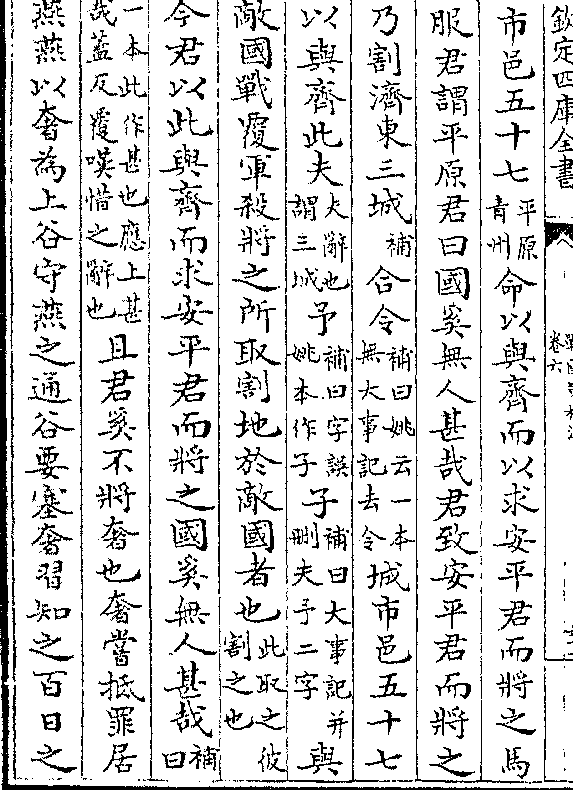 欽定四庫全書
卷六
市邑五十七平原青州命以與齊而以求安平君而將之馬
服君謂平原君曰國奚無人甚哉君致安平君而將之
乃割濟東三城補合令補曰姚云一本無大事記去令城市邑五十七
以與齊此夫夫辭也謂三城予補曰字誤姚本作子子補曰大事記并刪夫予二字與
敵國戰覆軍殺將之所取割地於敵國者也此取之彼割之也
今君以此與齊而求安平君而將之國奚無人甚哉補曰
一本此作甚也應上甚哉蓋反覆嘆惜之辭也且君奚不將奢也奢嘗抵罪居
燕燕以奢為上谷守燕之通谷要塞奢習知之百日之